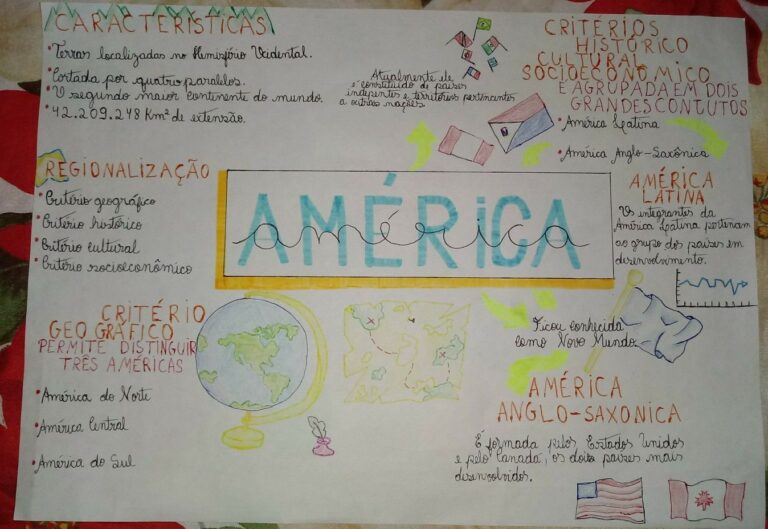 CARACTERISTICAS
• Terras localizadas no Hemisfério Ocidental.
• Cortada por quatro paralelos.
• O segundo maior continente do mundo.
• 42.209.248 Km² de extensão.
REGIONALIZAÇÃO
• Critério geográfico
• Critério histórico
• Critério cultural
• Critério socioeconômico
CRITÉRIO
GEOGRÁFICO
PERMITE DISTINGUIR
TRÊS AMÉRICAS
• América do Norte
• América Central
• América do Sul
Atualmente ele
é constituido de países
indepentes e territórios pertencentes
a outras nações
AMÉRICA
américa
CRITÉRIOS
HISTÓRICO
CULTURAL
SOCIOECONOMICO
E AGRUPADA EM DOIS
GRANDES CONTUTOS
• América Latina
• América Anglo-Saxônica
AMÉRICA
LATINA
Os integrantes da
América Latina pertencem
ao grupo dos países em
desenvolvimento.
Ficou conhecida
como Novo Mundo.
AMÉRICA
ANGLO-SAXONICA
É formada pelos Estados Unidos
e pelo Canadá, os dois países mais
desenvolvidos.